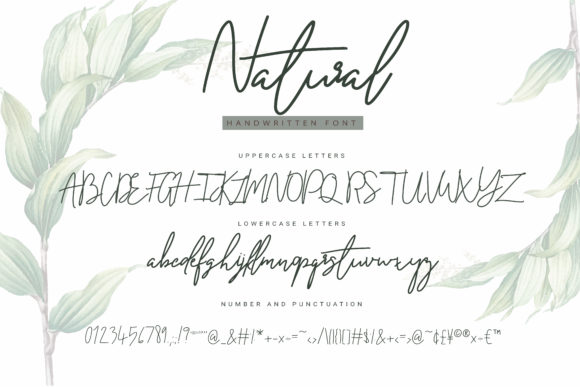 Natural
HANDWRITTEN FONT
UPPERCASE LETTERS
ABCDEFGHIJKLMNOPQRSTUVWXYZ
LOWERCASE LETTERS
abcdefghijklmnopqrstuvwxyz
NUMBER AND PUNCTUATION
0123456789.,:;!? @_&#!*+-×÷=~‹›/\|()[]#$!&+÷=@~¢£¥©®×÷€™